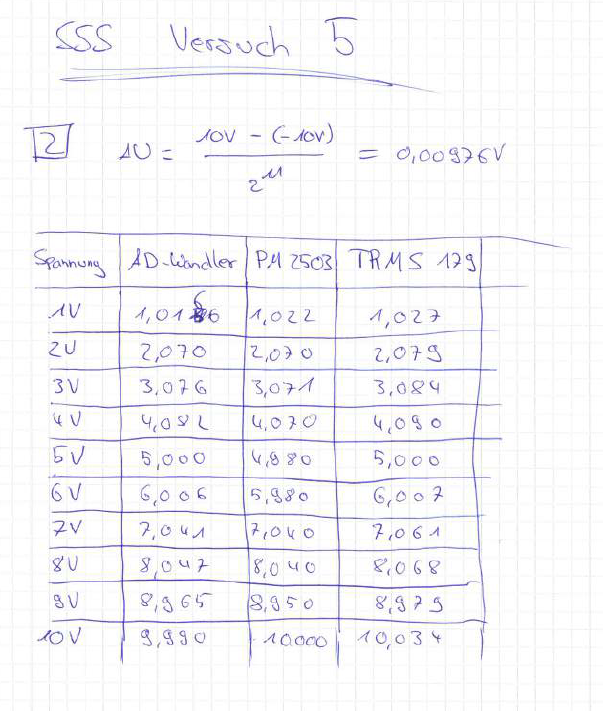 SSS Versuch 5
2 ΔU = (10V - (-10V)) / 2^11 = 0,00976V
Spannung AD-Wandler PM 2503 TRMS 179
1V 1,0166 1,022 1,027
2V 2,070 2,070 2,079
3V 3,076 3,071 3,084
4V 4,082 4,070 4,090
5V 5,000 4,980 5,000
6V 6,006 5,980 6,007
7V 7,041 7,040 7,061
8V 8,047 8,040 8,068
9V 8,965 8,950 8,979
10V 9,990 10,000 10,034